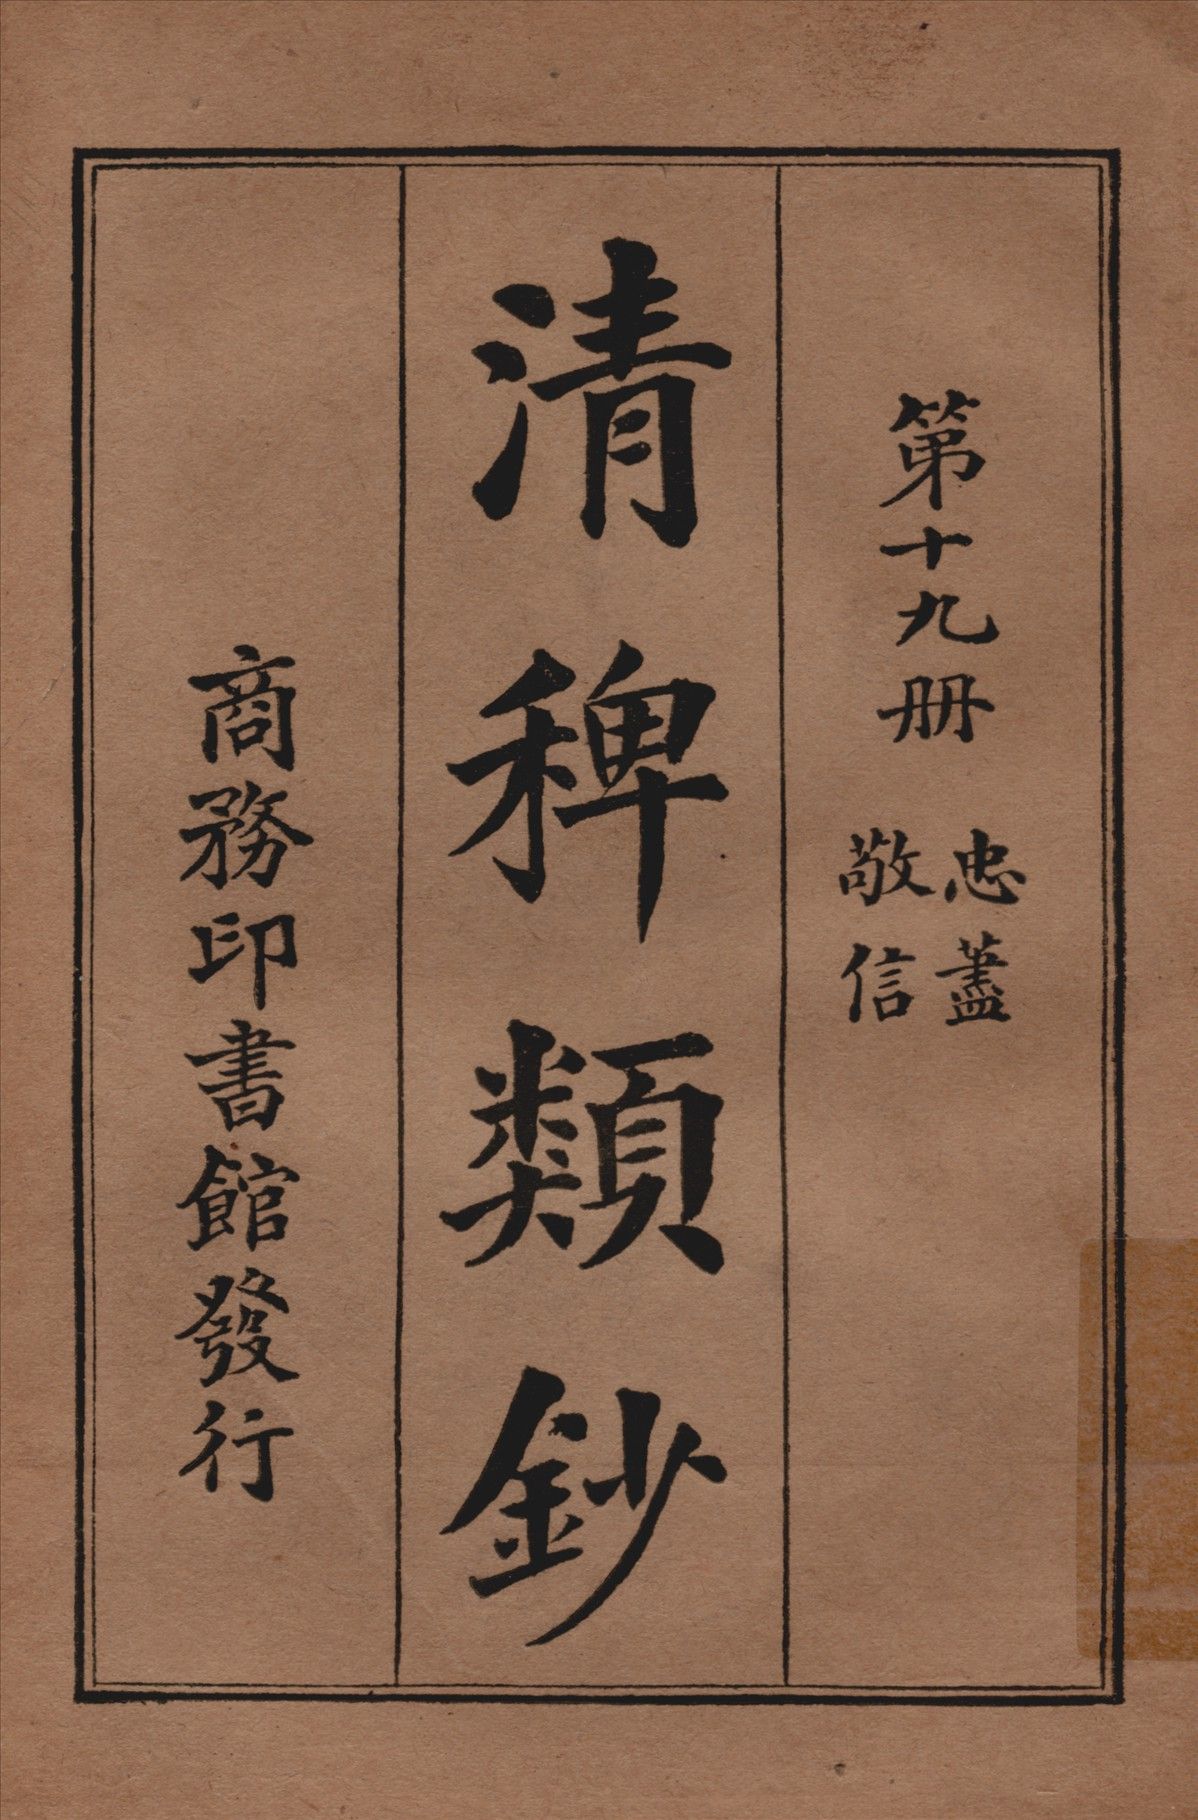 第十九册
忠藎
敬信
清稗類鈔
商務印書館發行